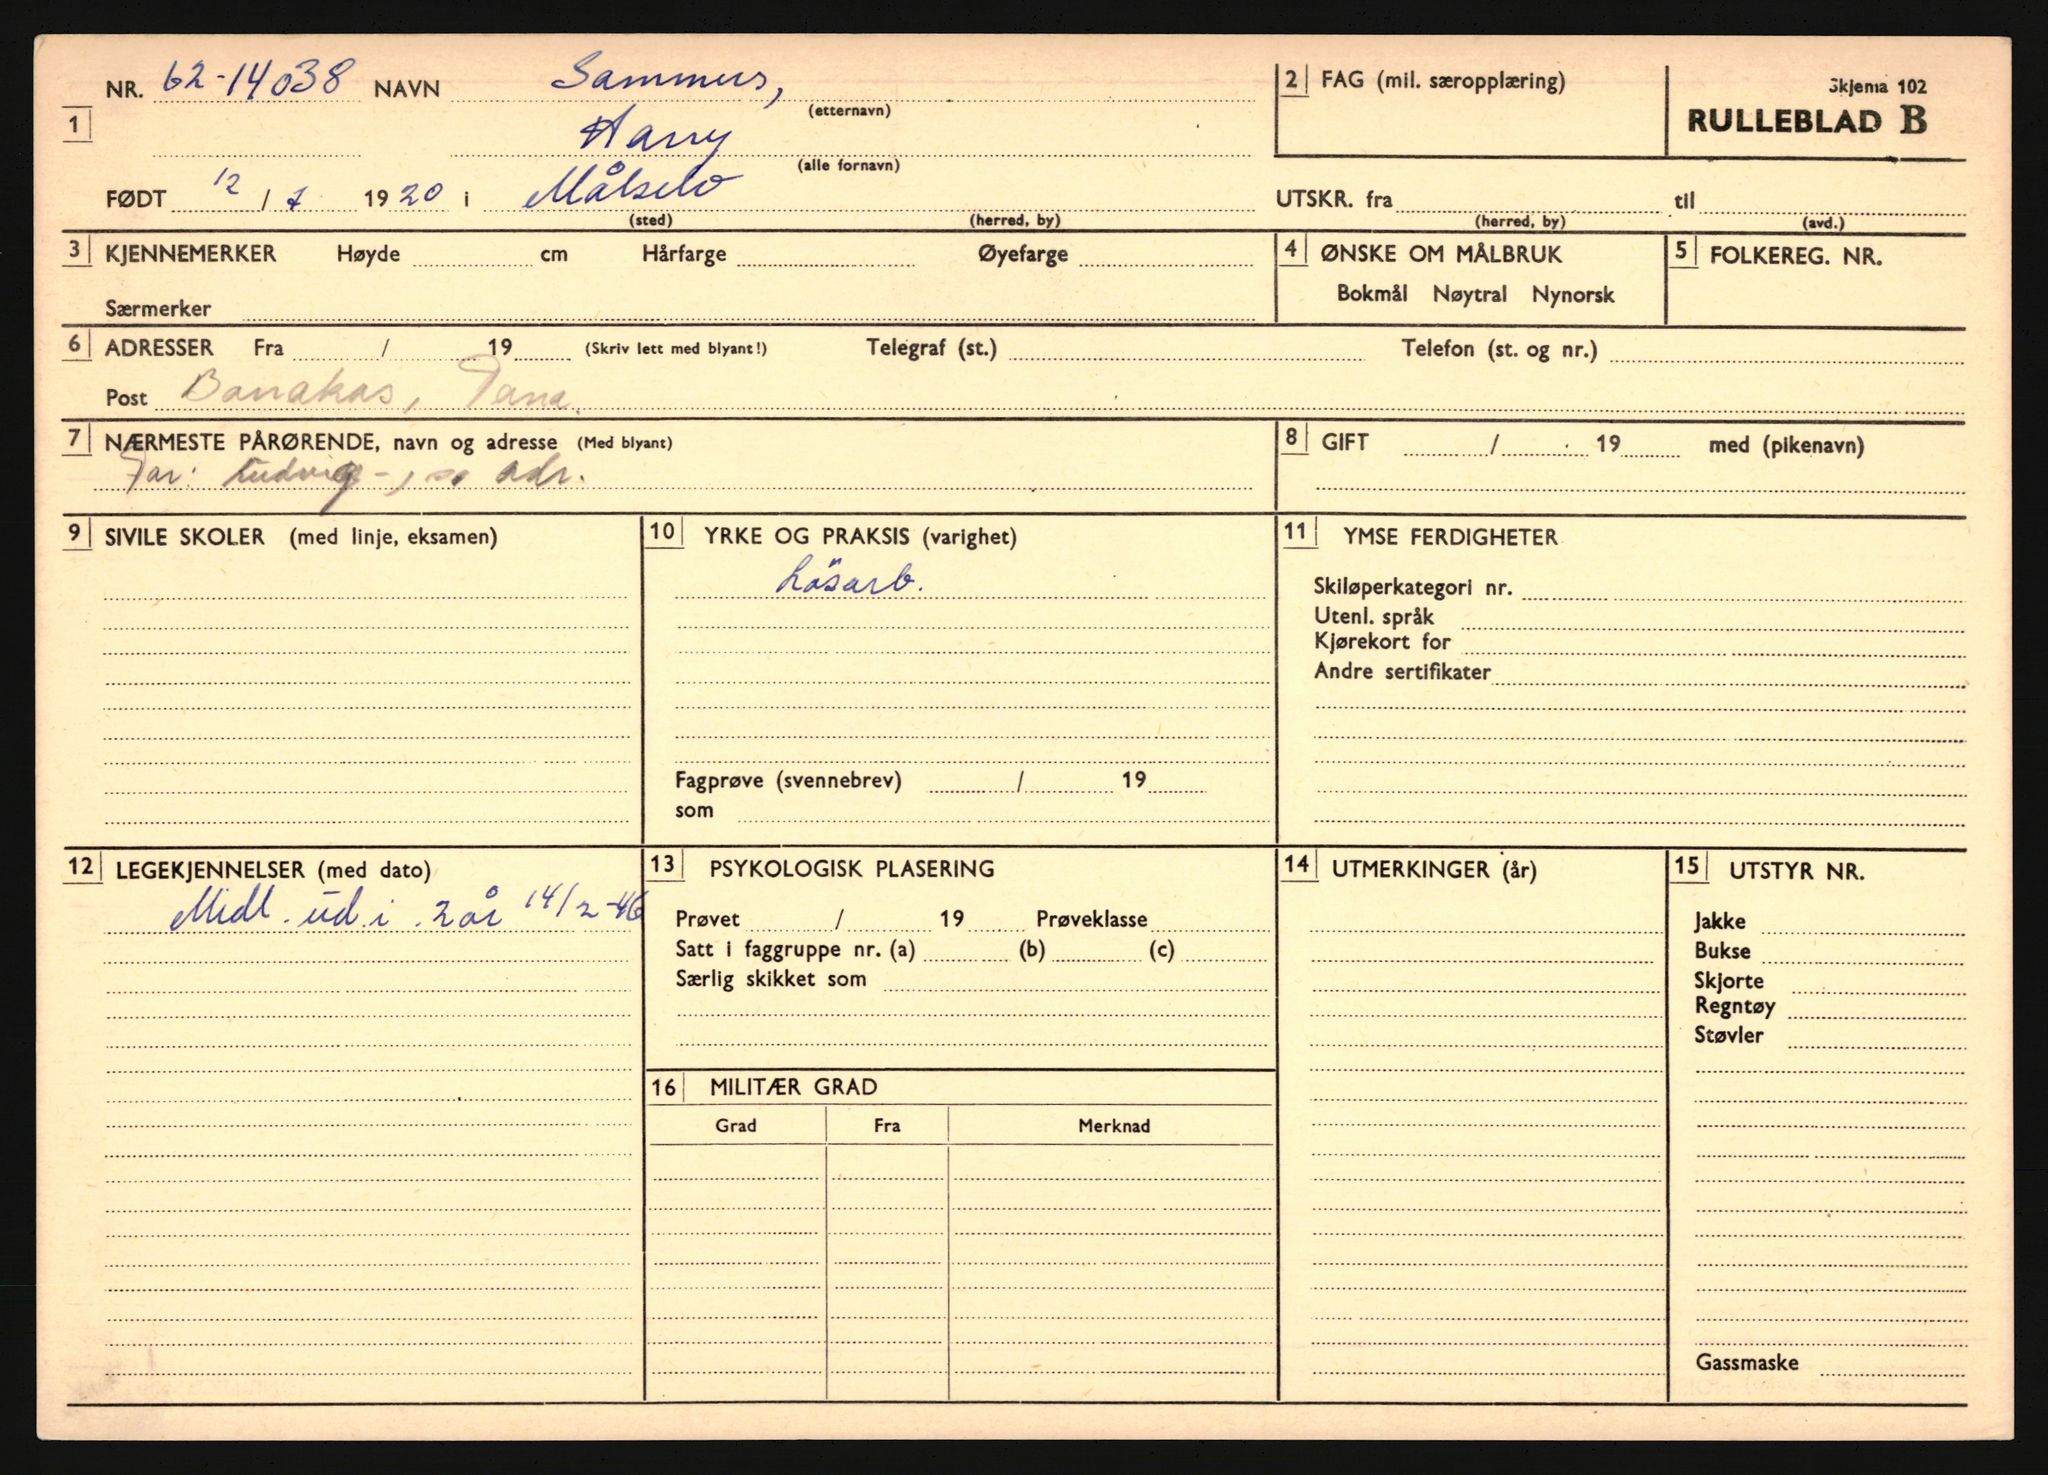 NR. 62-14038 NAVN Sammus, (etternavn)
1 Harry (alle fornavn)
FØDT 12 / 7 1920 i Målselv (sted) (herred, by)
2 FAG (mil. særopplæring)
Skjema 102
RULLEBLAD B
UTSKR. fra (herred, by) til (avd.)
3 KJENNEMERKER Høyde cm Hårfarge Øyefarge
Særmerker
4 ØNSKE OM MÅLBRUK
Bokmål Nøytral Nynorsk
5 FOLKEREG. NR.
6 ADRESSER Fra / 19 (Skriv lett med blyant!) Telegraf (st.) Telefon (st. og nr.)
Post Bonakas, Tana.
7 NÆRMESTE PÅRØRENDE, navn og adresse (Med blyant)
Far: Ludvig -, s. adr.
8 GIFT / 19 med (pikenavn)
9 SIVILE SKOLER (med linje, eksamen)
10 YRKE OG PRAKSIS (varighet)
Lösarb.
Fagprøve (svennebrev) / 19
som
11 YMSE FERDIGHETER
Skiløperkategori nr.
Utenl. språk
Kjørekort for
Andre sertifikater
12 LEGEKJENNELSER (med dato)
Midl. ud. i 2 år 14/2-46
13 PSYKOLOGISK PLASERING
Prøvet / 19 Prøveklasse
Satt i faggruppe nr. (a) (b) (c)
Særlig skikket som
16 MILITÆR GRAD
Grad Fra Merknad
14 UTMERKINGER (år)
15 UTSTYR NR.
Jakke
Bukse
Skjorte
Regntøy
Støvler
Gassmaske